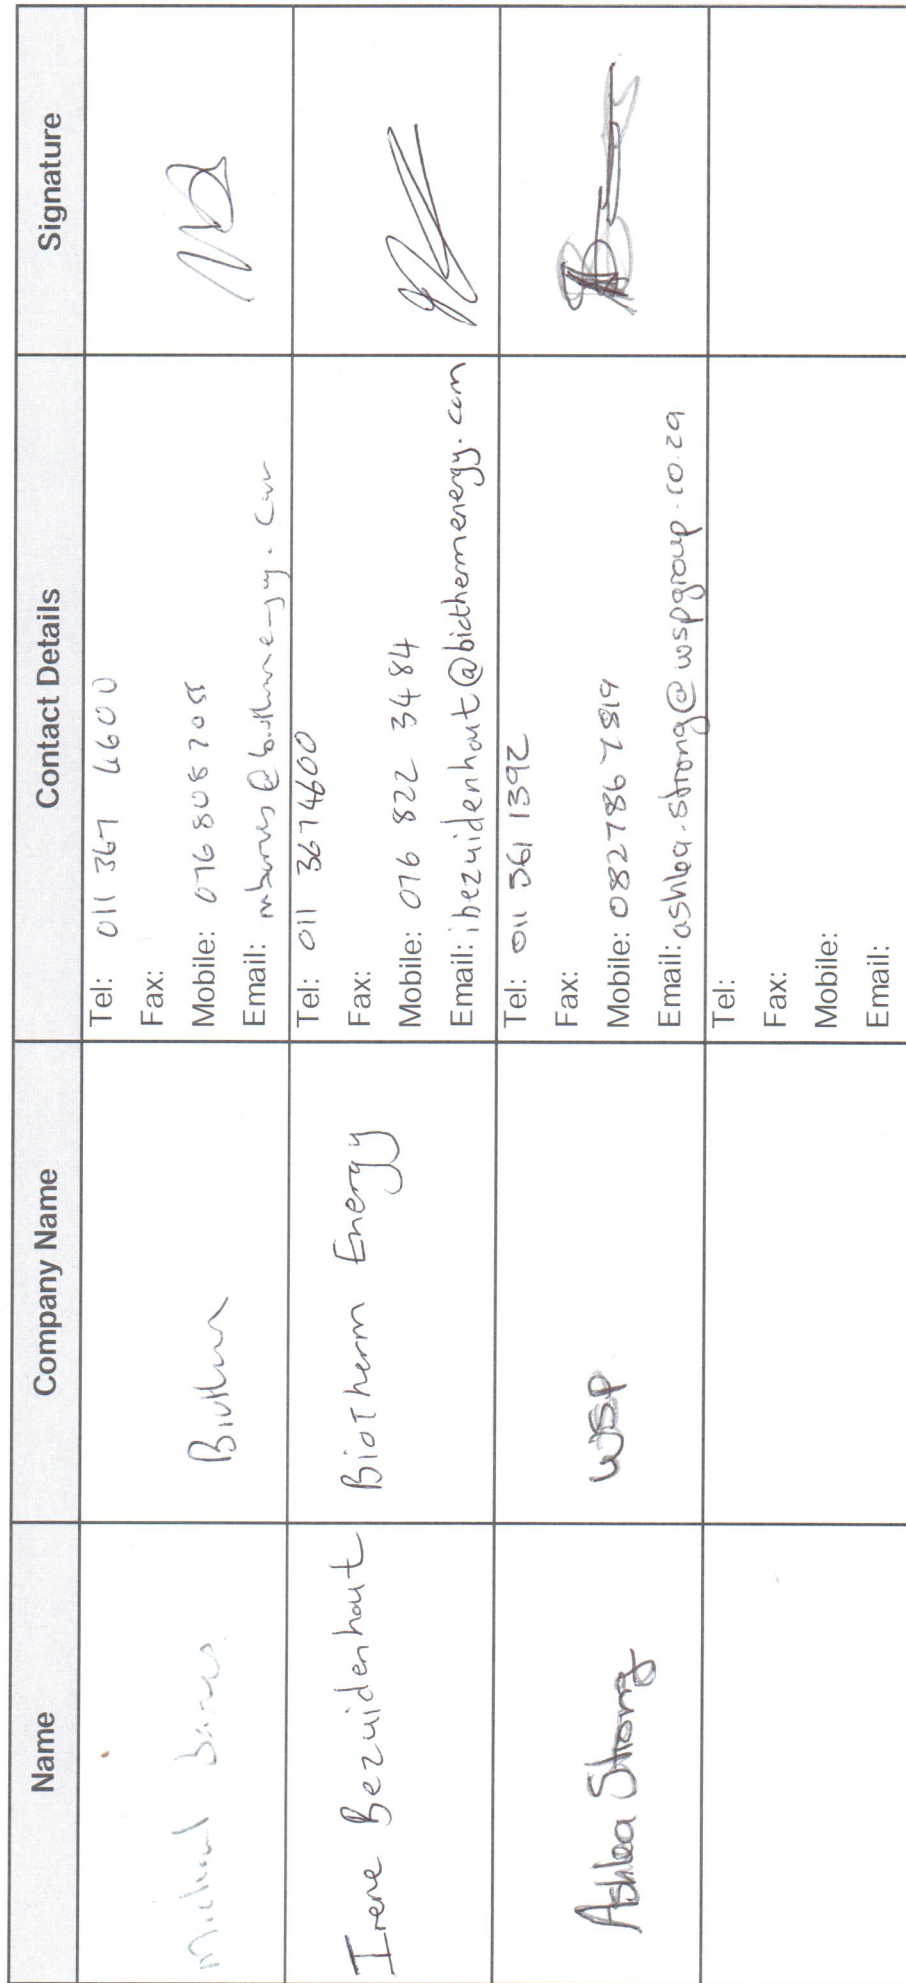 Name Company Name Contact Details Signature
Michael Barnes Biotherm
Tel: 011 367 4600
Fax:
Mobile: 076 808 7055
Email:
Irene Bezuidenhout BioTherm Energy
Tel: 011 367 4600
Fax:
Mobile: 076 822 3484
Email: ibezuidenhout@biothermenergy.com
Ashlea Strong WSP
Tel: 011 361 1392
Fax:
Mobile: 082 786 7819
Email: ashlea.strong@wspgroup.co.za
Tel:
Fax:
Mobile:
Email: